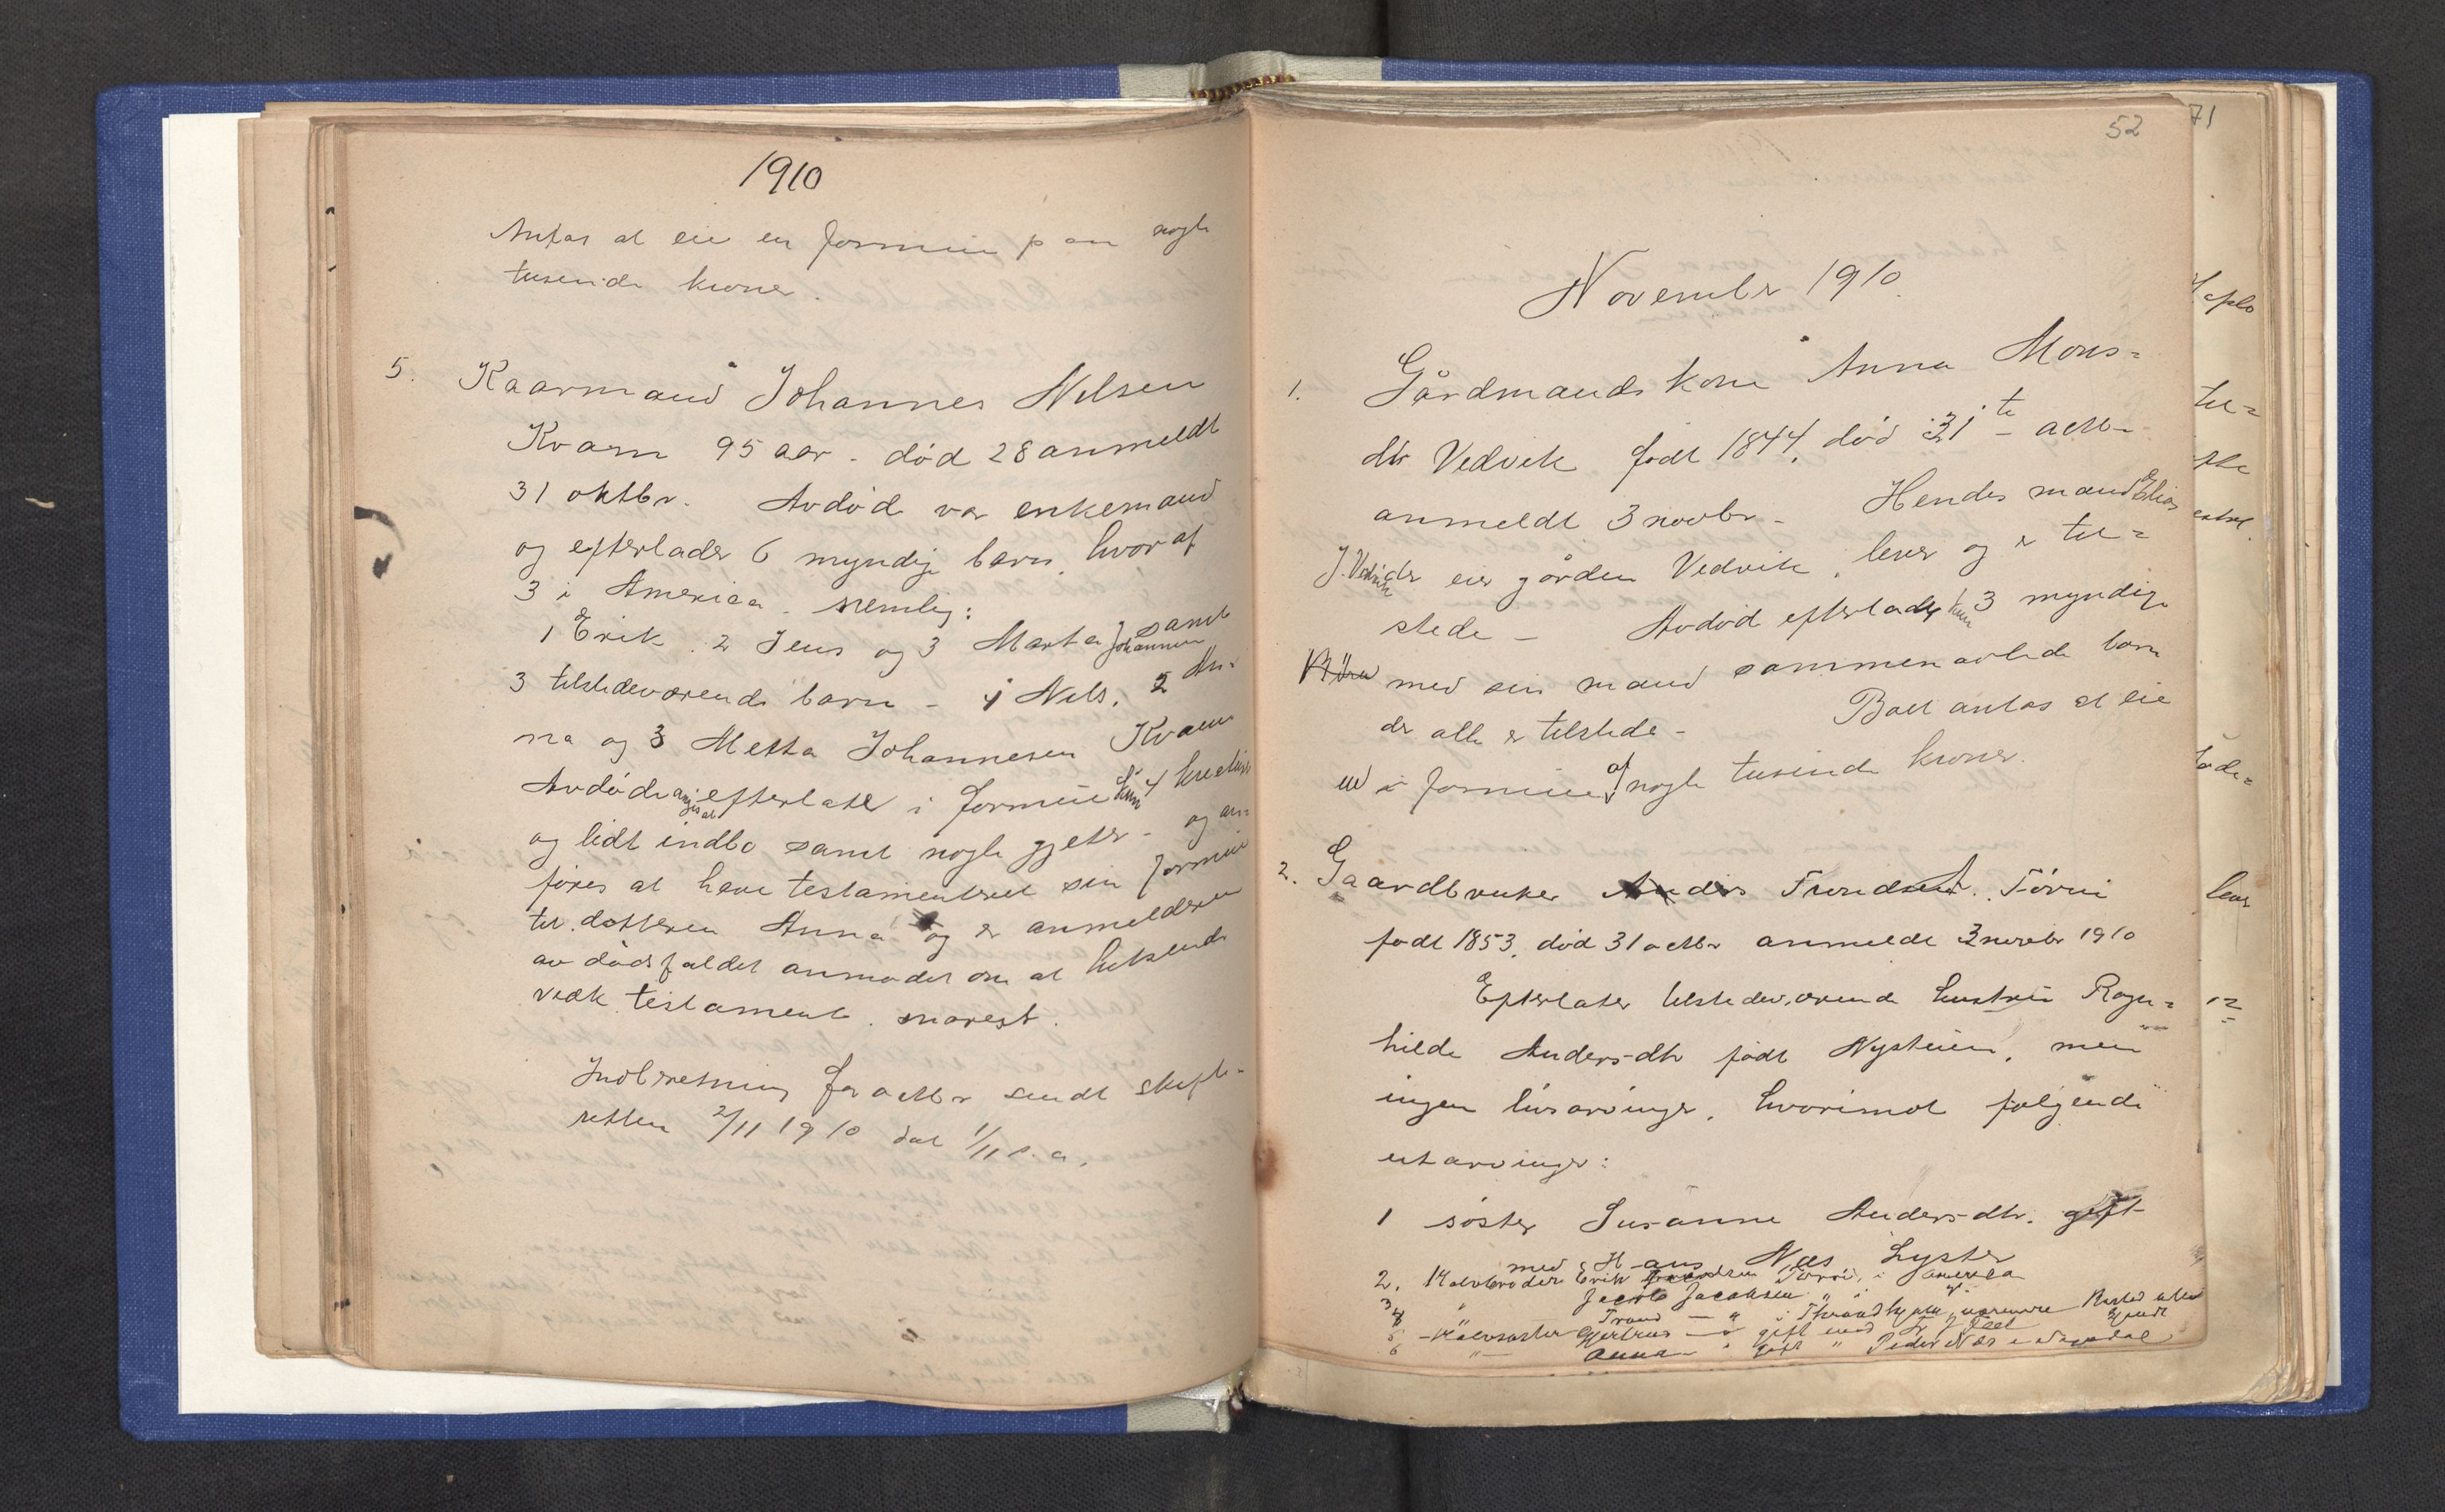 1910
Antas at eie en formue p an nogle
tusende kroner.
5. Kaarmand Johannes Nilsen
Kvam 95 aar - død 28 anmeldt
31 oktbr. Avdøde var enkemand
og efterlader 6 myndige barn, hvoraf
3 i America - nemlig:
1 Erik, 2 Jens og 3 Marta Johannesen samt
3 tilstedeværende barn - 1 Nils, 2 An-
na og 3 Metta Johannesen Kvam
Avdøde angis at efterlate i formue kun 4 kreturer
og lidt indbo samt nogle gjeter - og an-
føres at have testamenteret sin formue
til datteren Anna og er anmelderen
av dødsfaldet anmodet om at
testamente snarest.
Indberetning for octbr sendt skifte-
retten 2/11 1910 dat 1/11 s.a.
52
71
November 1910
1. Gårdmandskone Anna Mons-
dtr Vedvik født 1844, død 31te octbr
anmeldt 3 novbr - Hendes mand Elias
J. Vedvik der eier gården Vedvik, lever og er til-
stede - Avdøde efterlader kun 3 myndige
med sin mand sammenavlede barn
der alle er tilstede - Boet antas at eie
en formue af nogle tusende kroner.
2. Gaardbruker Anders Trondsen Tørvi
født 1853, død 31 octbr anmeldt 3 novbr 1910
Efterlater tilstedeværende hustru Ragn-
hilde Andersdtr født Nysteien, men
ingen livsarvinger, hvorimot følgende
utarvinger:
1 søster Susanne Andersdtr. gift
med Hans Næs Lyster
2. Halvbroder Erik Tørvi, i America
3 " Jacob Jacobsen " "
4 " Trond - " i Throndhjem
5 - Halvsøster Gjertrud - " gift med
6 " Anna - " gift " Peder Næs i